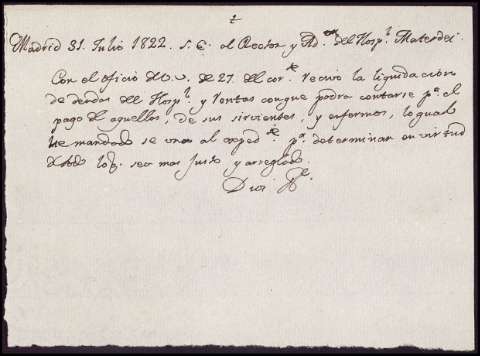 Madrid 31. Julio 1822. S. E. al Rector y Ad.or del Hosp.l Materdei.
Con el oficio de V. S. de 27. del cor.te recivo la liquidacion
de deudas del Hosp.l y rentas con que podra contarse p.a el
pago de aquellas, de sus sirvientes, y enfermos, lo qual
he mandado se una al exped.te p.a determinar en virtud
de todo lo q.e sea mas justo y arreglado.
Dios &.